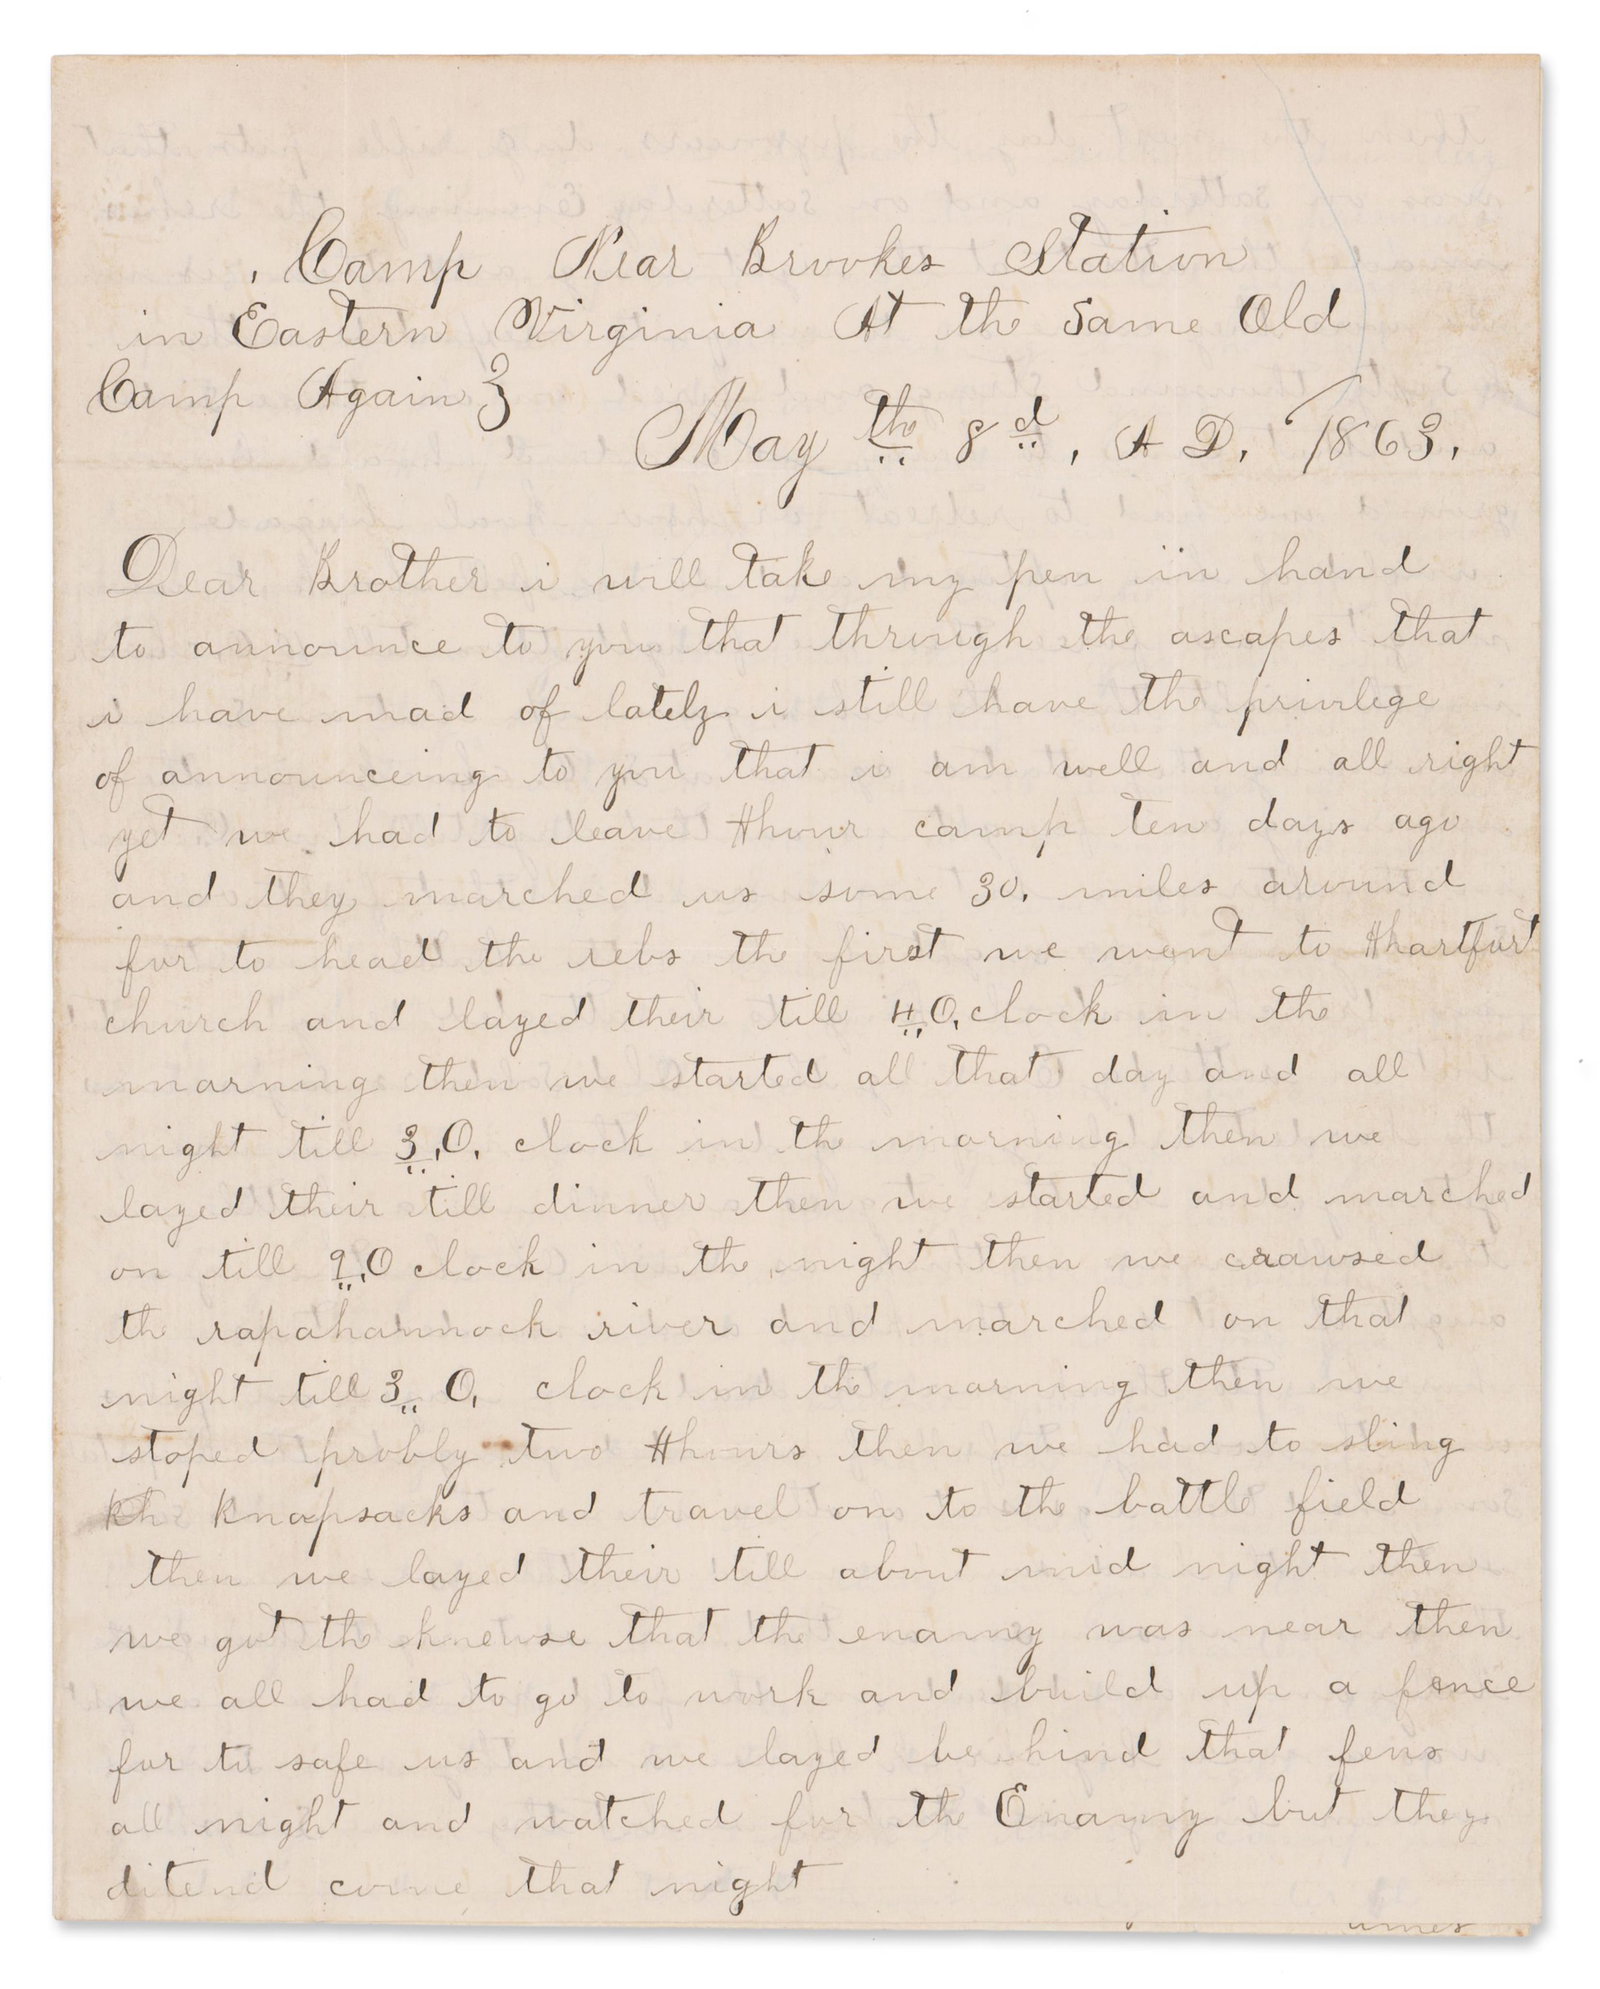 Camp Near Brookes Station
in Eastern Virginia At the Same Old
Camp Again }
May the 8d, A D, 1863,
Dear Brother i will take my pen in hand
to announce to you that through the ascapes that
i have mad of lately i still have the privilege
of announceing to you that i am well and all right
yet we had to leave Hhour camp ten days ago
and they marched us some 30, miles around
for to head the rebs the first we went to Hhartfort
church and layed their till 4 O, clock in the
morning then we started all that day and all
night till 3, O, clock in th morning then we
layed their till dinner then we started and marched
on till 9, O clock in the night then we crawsed
th rapahannock river and marched on that
night till 3 O, clock in the morning then we
stoped probly two Hhours then we had to sling
kh knapsacks and travel on to the battle field
then we layed their till about mid night then
we got the knewse that the enamy was near then
we all had to go to work and build up a fence
for to safe us and we layed be hind that fens
all night and watched for the Enamy but they
ditend come that night